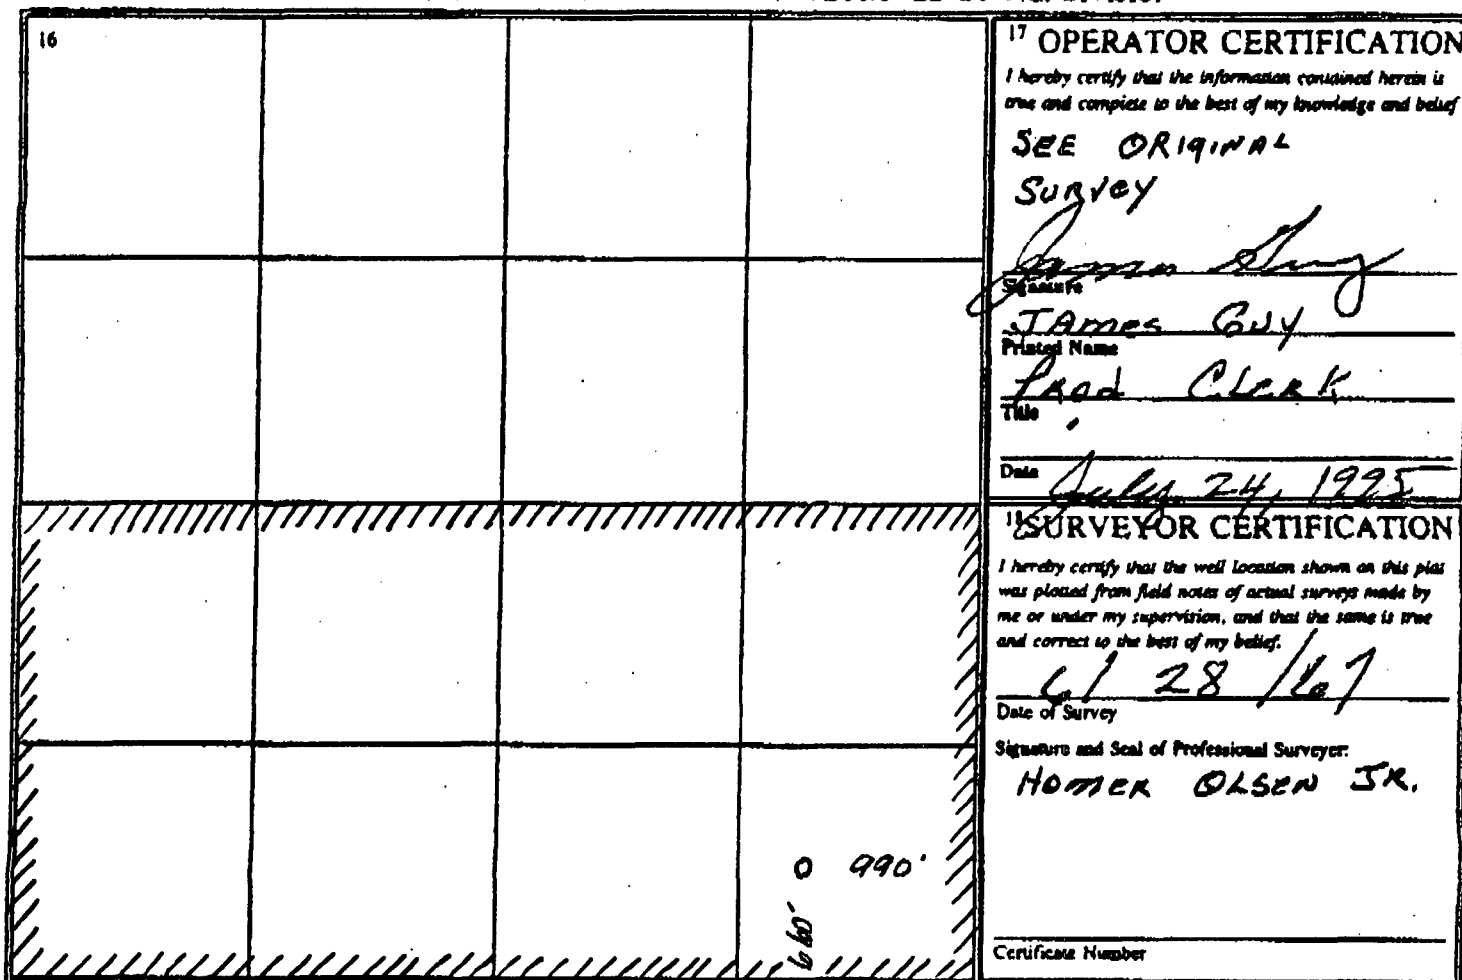 16
990'
660'
17 OPERATOR CERTIFICATION
I hereby certify that the information contained herein is
true and complete to the best of my knowledge and belief
SEE ORIGINAL
SURVEY
Signature
JAMES GUY
Printed Name
Prod Clerk
Title
Date July 24, 1995
18 SURVEYOR CERTIFICATION
I hereby certify that the well location shown on this plat
was plotted from field notes of actual surveys made by
me or under my supervision, and that the same is true
and correct to the best of my belief.
6/28/67
Date of Survey
Signature and Seal of Professional Surveyer:
HOMER OLSEN JR.
Certificate Number